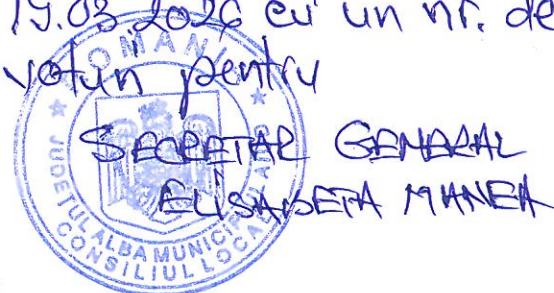 19.03.2026 cu un nr. de
voturi pentru
SECRETAR GENERAL
ELISABETA MANEA
ROMÂNIA
JUDEȚUL ALBA
CONSILIUL LOCAL